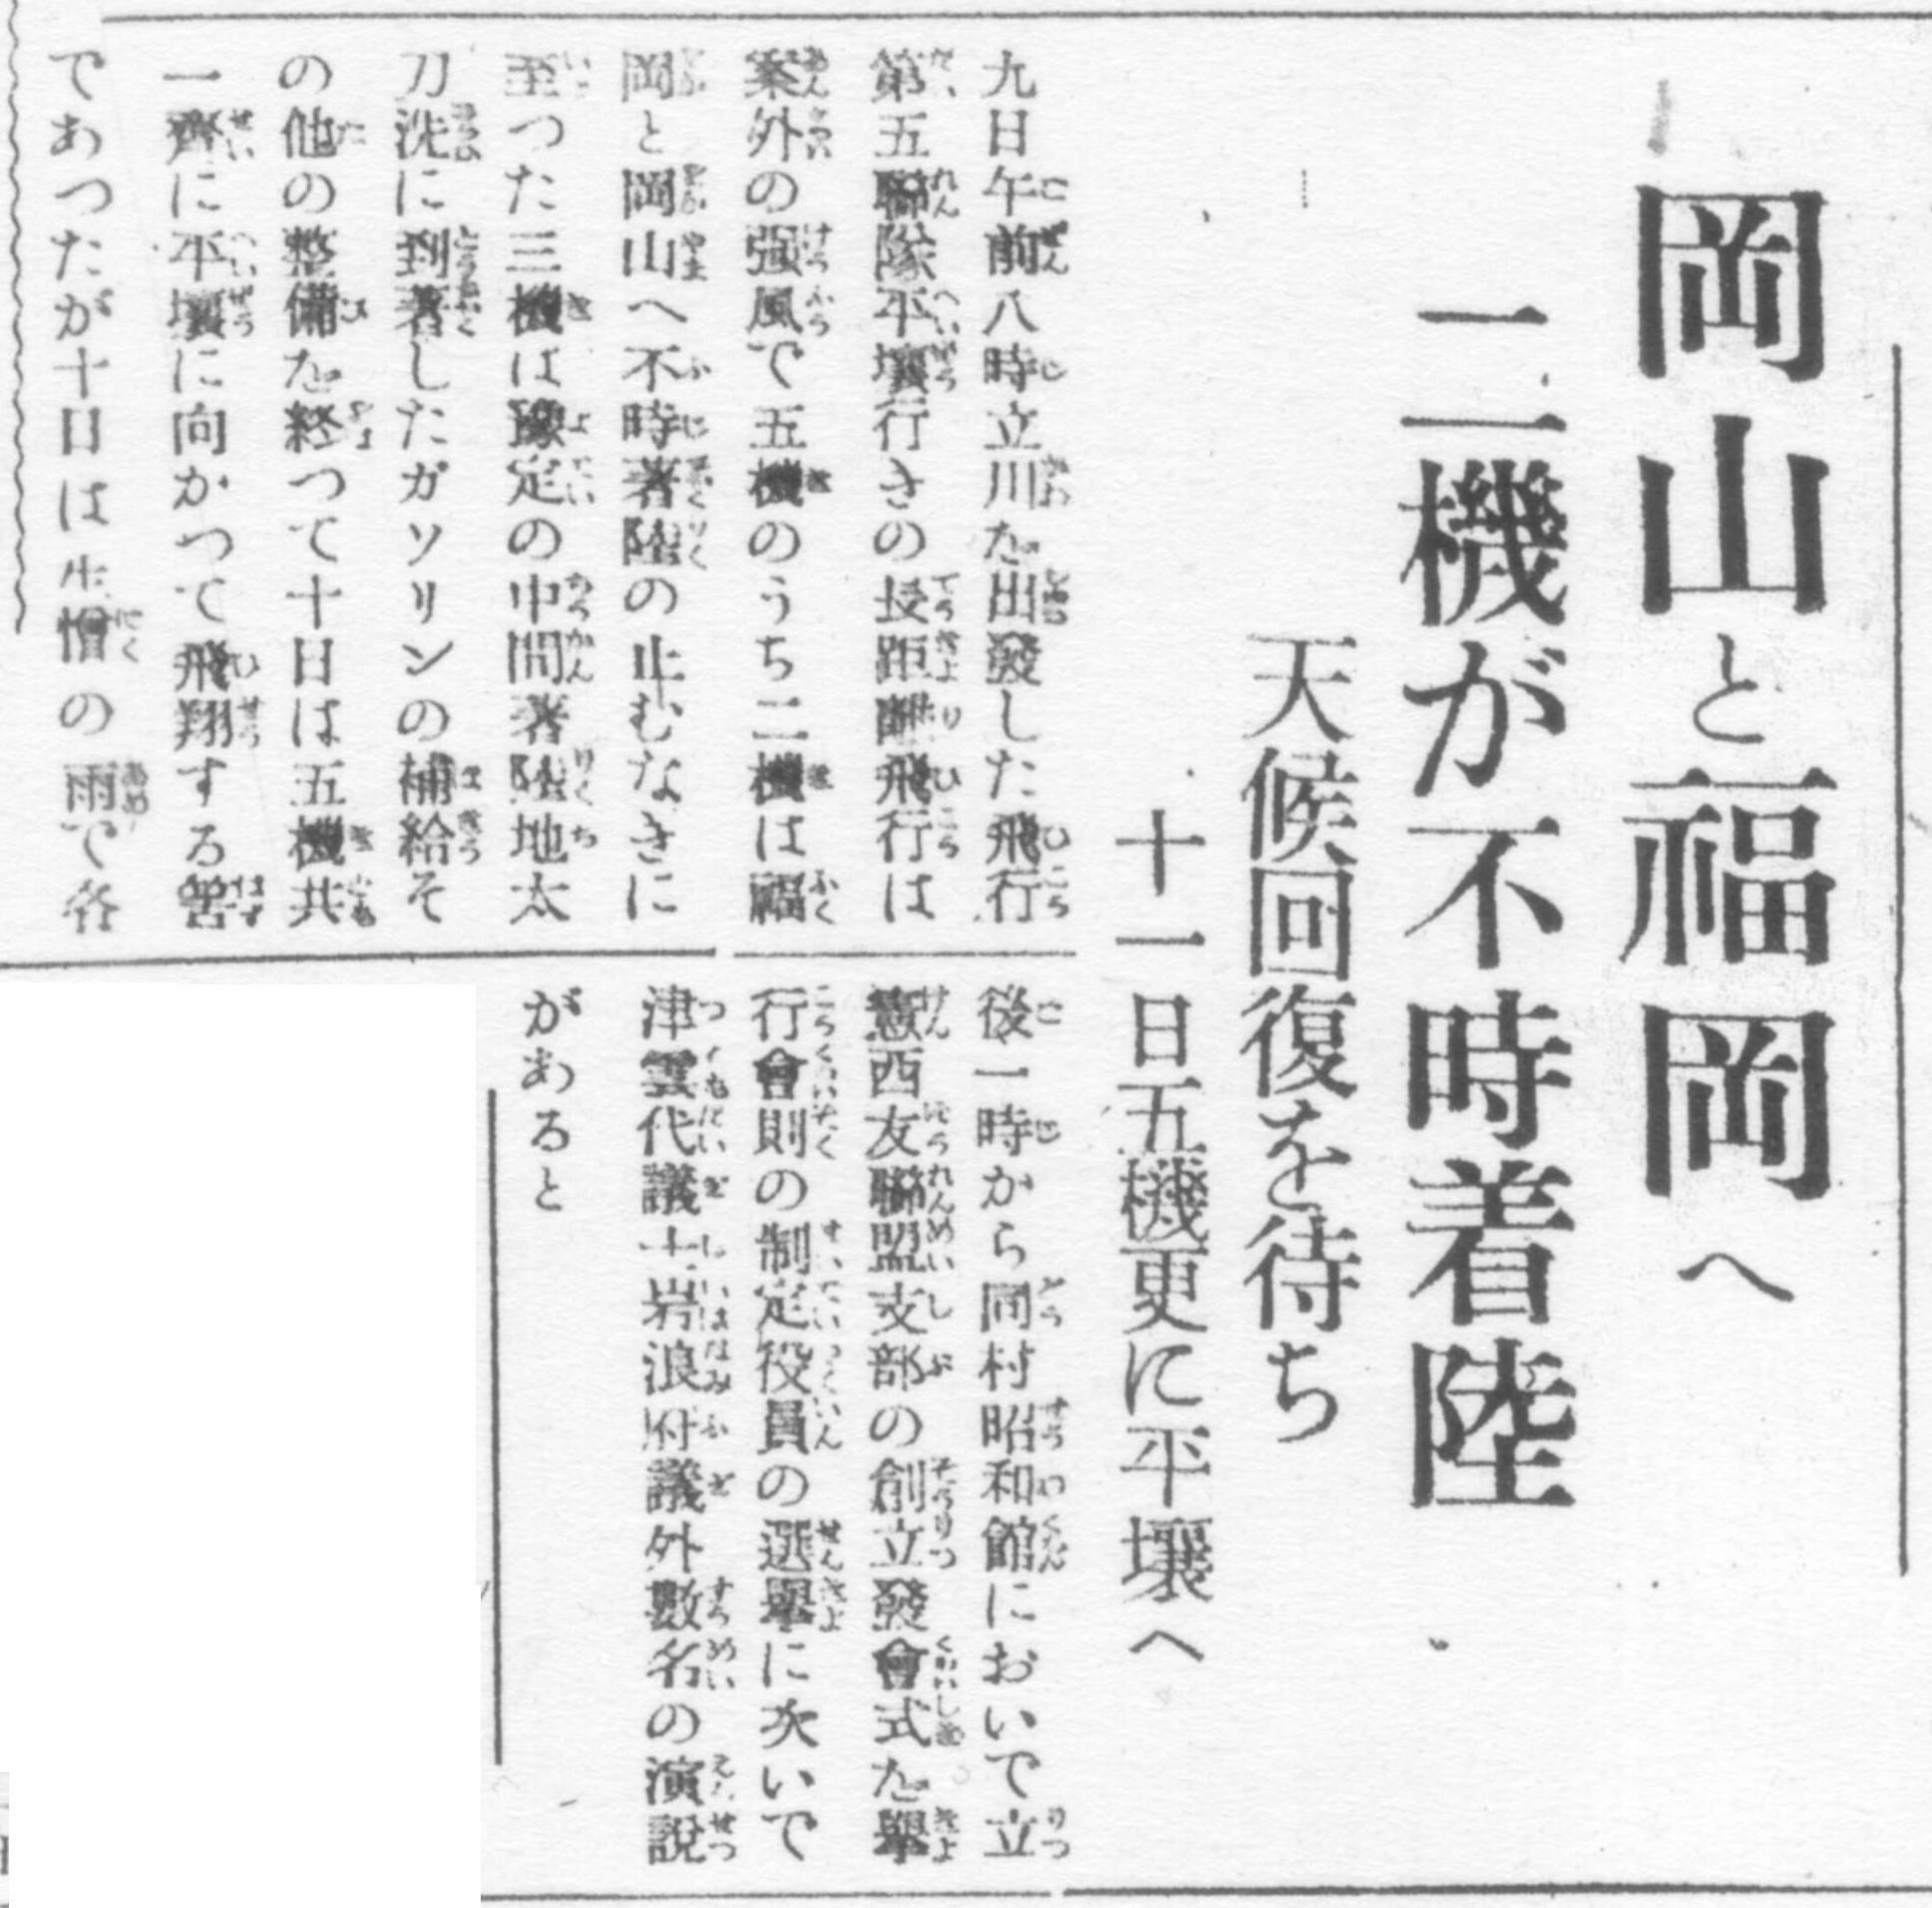 岡山と福岡へ
二機が不時着陸
天候回復を待ち
十一日五機更に平壤へ
九日午前八時立川を出發した飛行
第五聯隊平壤行きの長距離飛行は
案外の强風で五機のうち二機は福
岡と岡山へ不時著陸の止むなきに
至つた三機は豫定の中間著陸地太
刀洗に到著したガソリンの補給そ
の他の整備を終つて十日は五機共
一齊に平壤に向かつて飛翔する筈
であつたが十日は生憎の雨で各
後一時から同村昭和館において立
憲西友聯盟支部の創立發會式を擧
行會則の制定役員の選擧に次いで
津雲代議士岩浪府議外數名の演說
があると